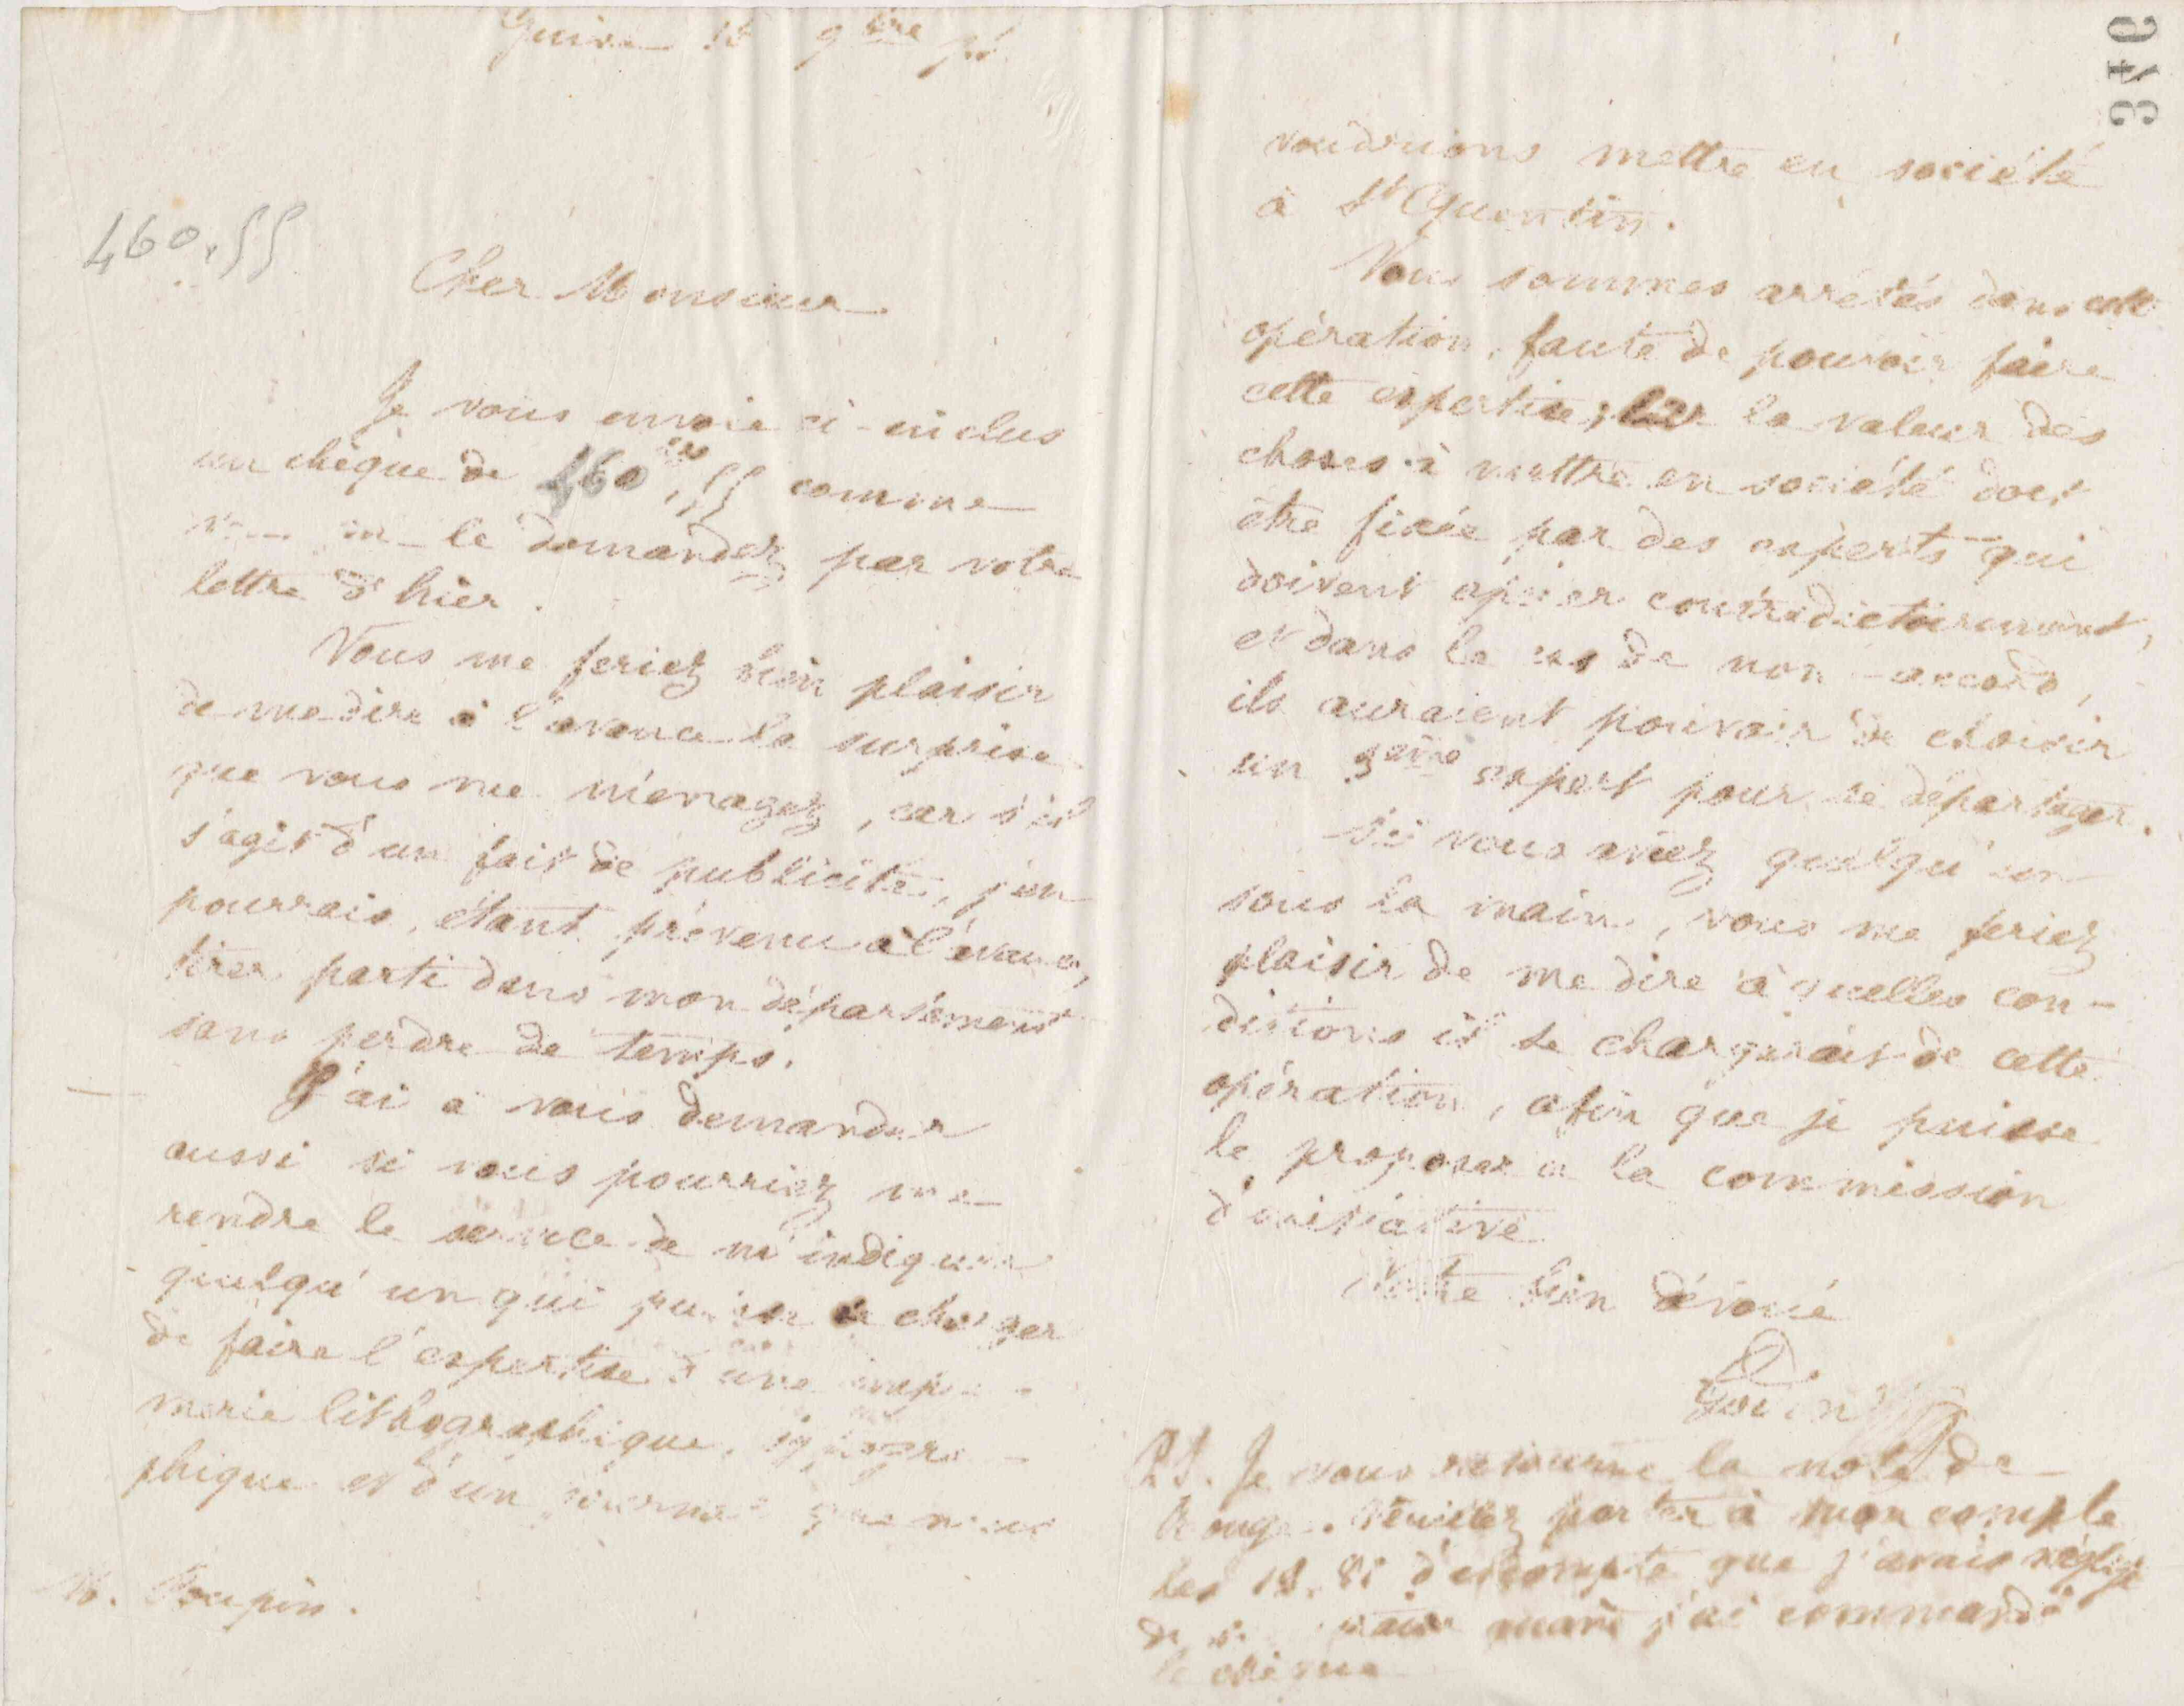 Guise 9bre
460,55
Cher Monsieur
Je vous envoie ci-inclus
un chèque de 460 frs, 55 comme
vous me le demandez par votre
lettre d'hier.
Vous me feriez bien plaisir
de me dire à l'avance la surprise
que vous me ménagez, car s'il
s'agit d'un fait de publicité, j'en
pourrais, étant prévenu à l'avance,
tirer parti dans mon département
sans perdre de temps.
J'ai à vous demander
aussi si vous pourriez me
rendre le service de m'indiquer
quelqu'un qui puisse se charger
de faire l'expertise d'une impri-
merie lithographique, typogra-
phique et d'un journal que nous
M.
346
voudrions mettre en société
à St Quentin.
Nous sommes arrêtés dans cette
opération, faute de pouvoir faire
cette expertise; car la valeur des
choses à mettre en société doit
être fixée par des experts qui
doivent opérer contradictoirement,
et dans le cas de non-accord,
ils auraient pouvoir de choisir
un 3ème expert pour se départager.
Si vous aviez quelqu'un
sous la main, vous me feriez
plaisir de me dire à quelles con-
ditions il se chargerait de cette
opération, afin que je puisse
le proposer à la commission
d'initiative.
Votre bien dévoué
Godin
P.S. Je vous retourne la note de
Veuillez porter à mon compte
les d'escompte que j'avais négligé
de quand j'ai commandé
le chèque